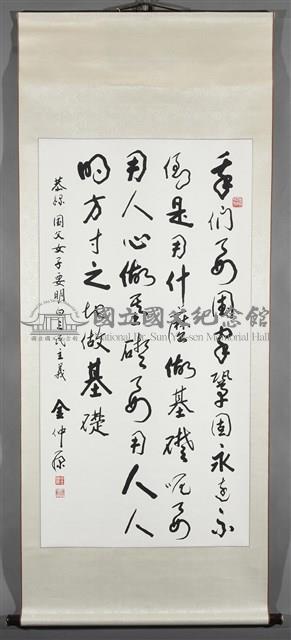 我們要國家鞏固永遠不
倒是用什麼做基礎呢要
用人心做基礎要用人人
的方寸之地做基礎
恭錄 國父女子要明白三民主義
金仲原
國立國父紀念館
National Dr. Sun Yat-sen Memorial Hall